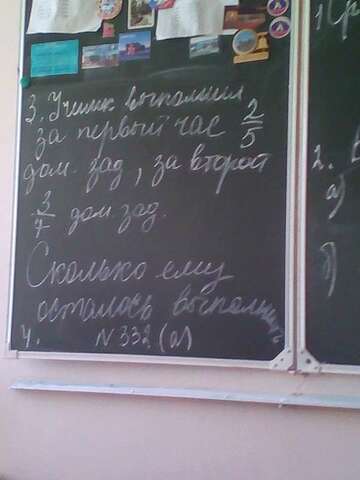 3. Ученик выполнил
за первый час 2/5
дом. зад., за второй
3/7 дом. зад.
Сколько ему
осталось выполнить
4. №332(а)
1.
2.
а)
б)